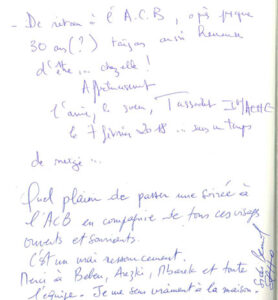 - De retour à l'A.C.B, après presque
30 ans (?) faisons ainsi honneur
d'être ... chez elle !
Affectueusement
l'ami, le
le 7 février 2018 ... sous un temps
de neige ...
Quel plaisir de passer une soirée à
l'ACB en compagnie de tous ces visages
ouverts et souriants.
C'est un vrai ressourcement.
Merci à Beben, Arezki, Mbarek et toute
l'équipe. Je me sens vraiment à la maison.